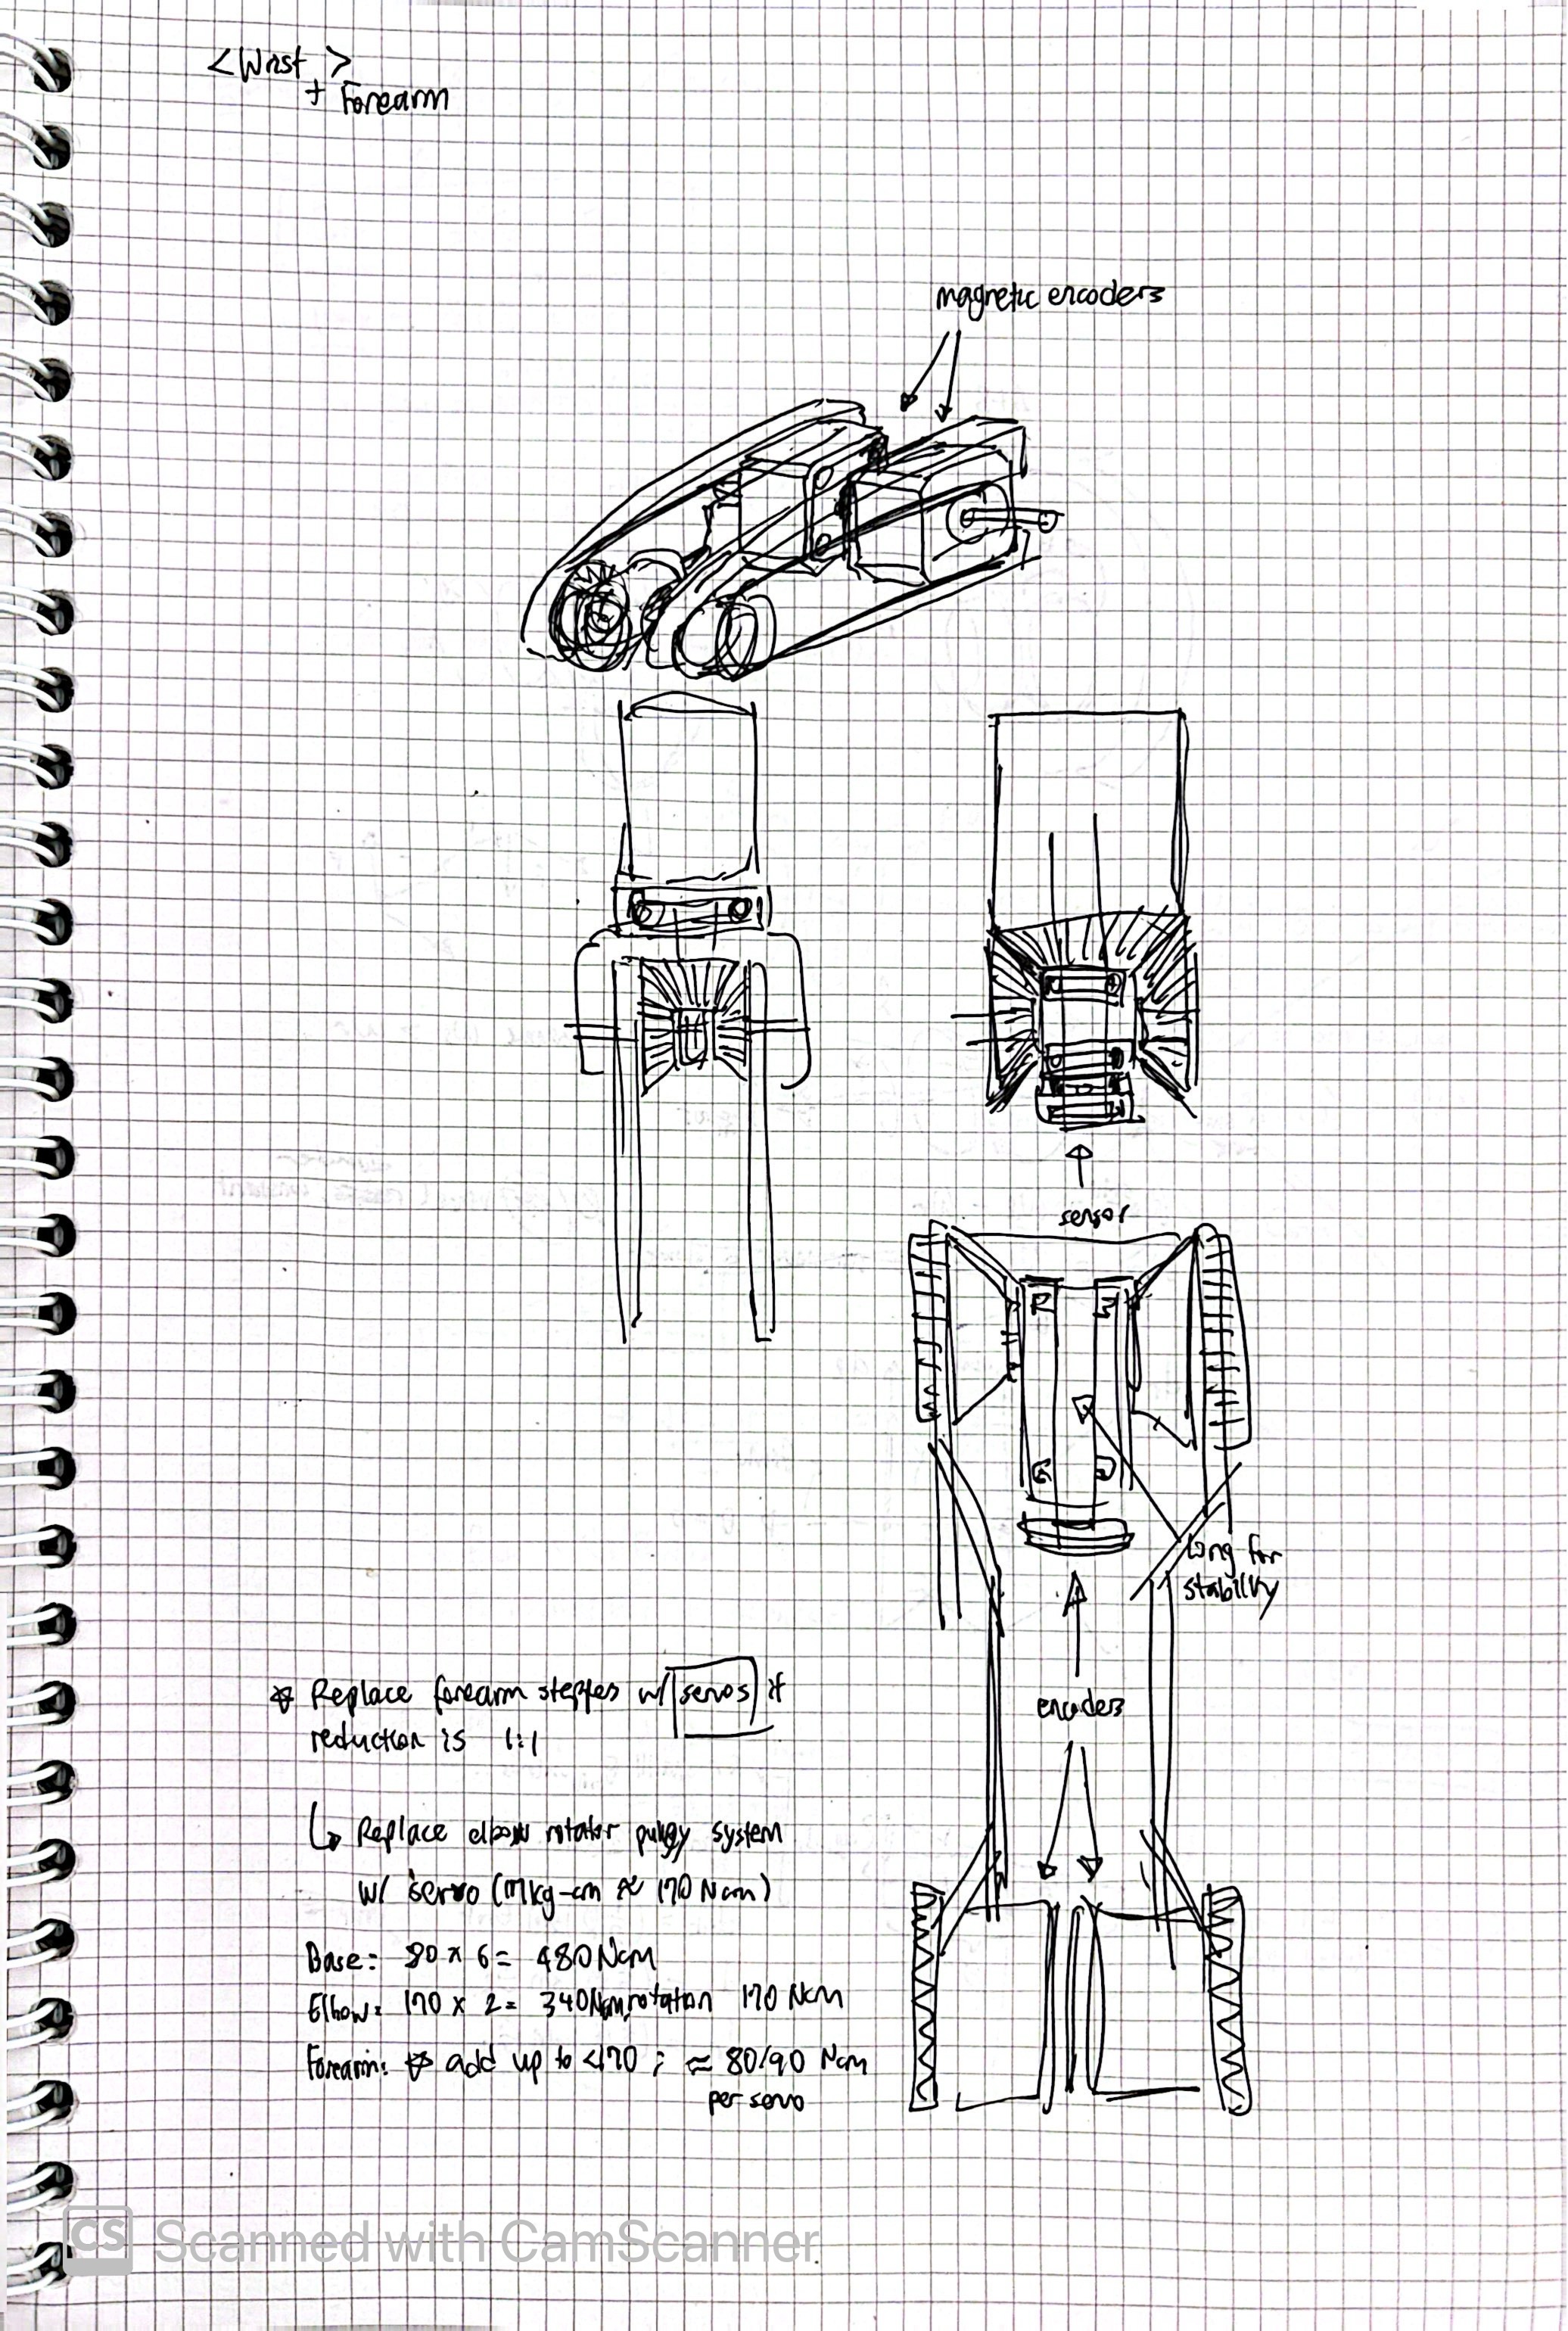 <Wrist>
+ Forearm
magnetic encoders
sensor
long for
stability
encoders
* Replace forearm steppers w/ servos if
reduction is 1:1
↳ Replace elbow rotator pulley system
w/ servo (17kg-cm ≈ 170 Ncm)
Base: 80 x 6 = 480 Ncm
Elbow: 170 x 2 = 340 Ncm, rotation 170 Ncm
Forearm: * add up to <170 ; ≈ 80/90 Ncm
per servo
CS Scanned with CamScanner